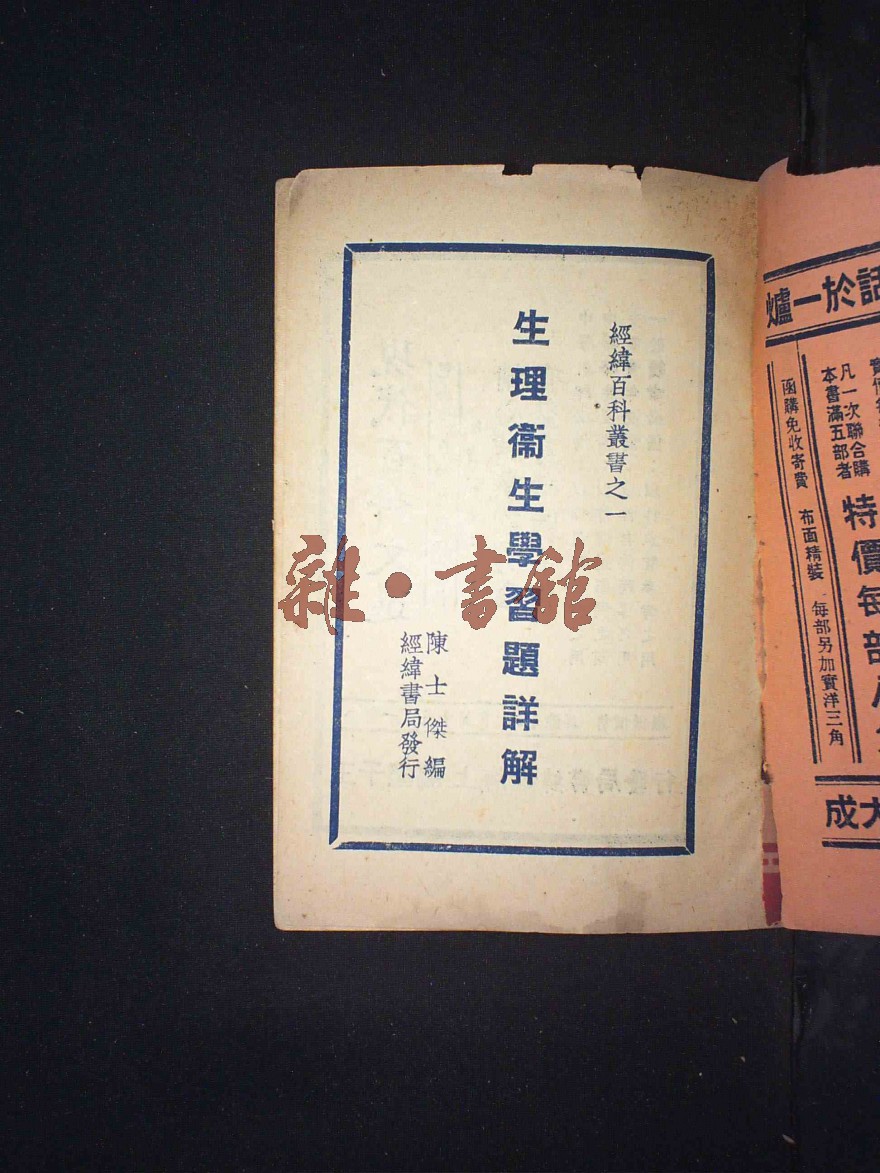 經緯百科叢書之一
生理衞生學習題詳解
陳士傑編
經緯書局發行
雜·書館
話於一爐
凡一次聯合購
本書滿五部者
特價每部
函購免收寄費 布面精裝 每部另加實洋三角
大成